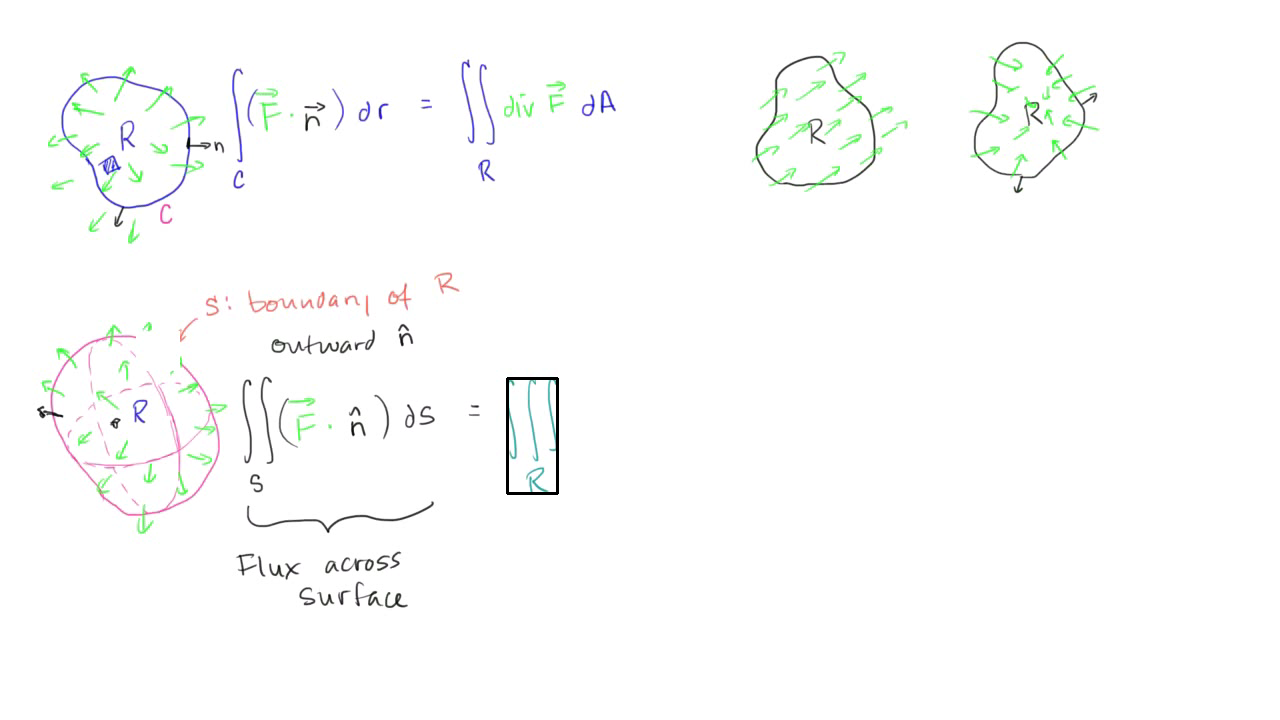 R
n
C
∫ ( F⃗ · n⃗ ) dr = ∬ div F⃗ dA
C R
R
R
S: boundary of R
outward n̂
R
∬ ( F⃗ · n̂ ) dS = ∭
S R
Flux across
surface